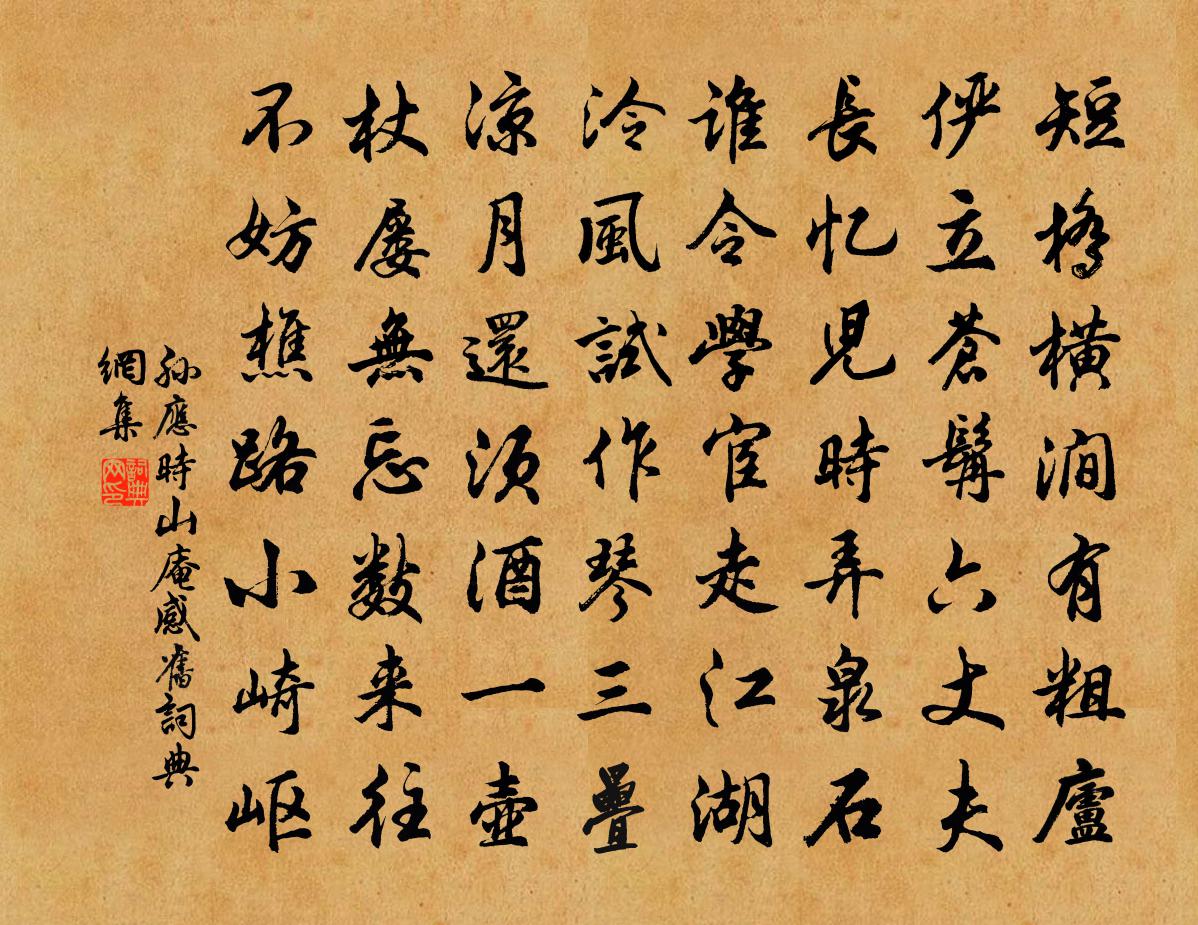 短橋橫澗有粗廬
俨立蒼髯六丈夫
長忆兒時弄泉石
誰令學宦走江湖
泠風試作琴三疊
凉月還須酒一壺
杖屨無忘數来往
不妨樵路小崎岖
孙應時山庵感舊詞典
網集
詞典網印